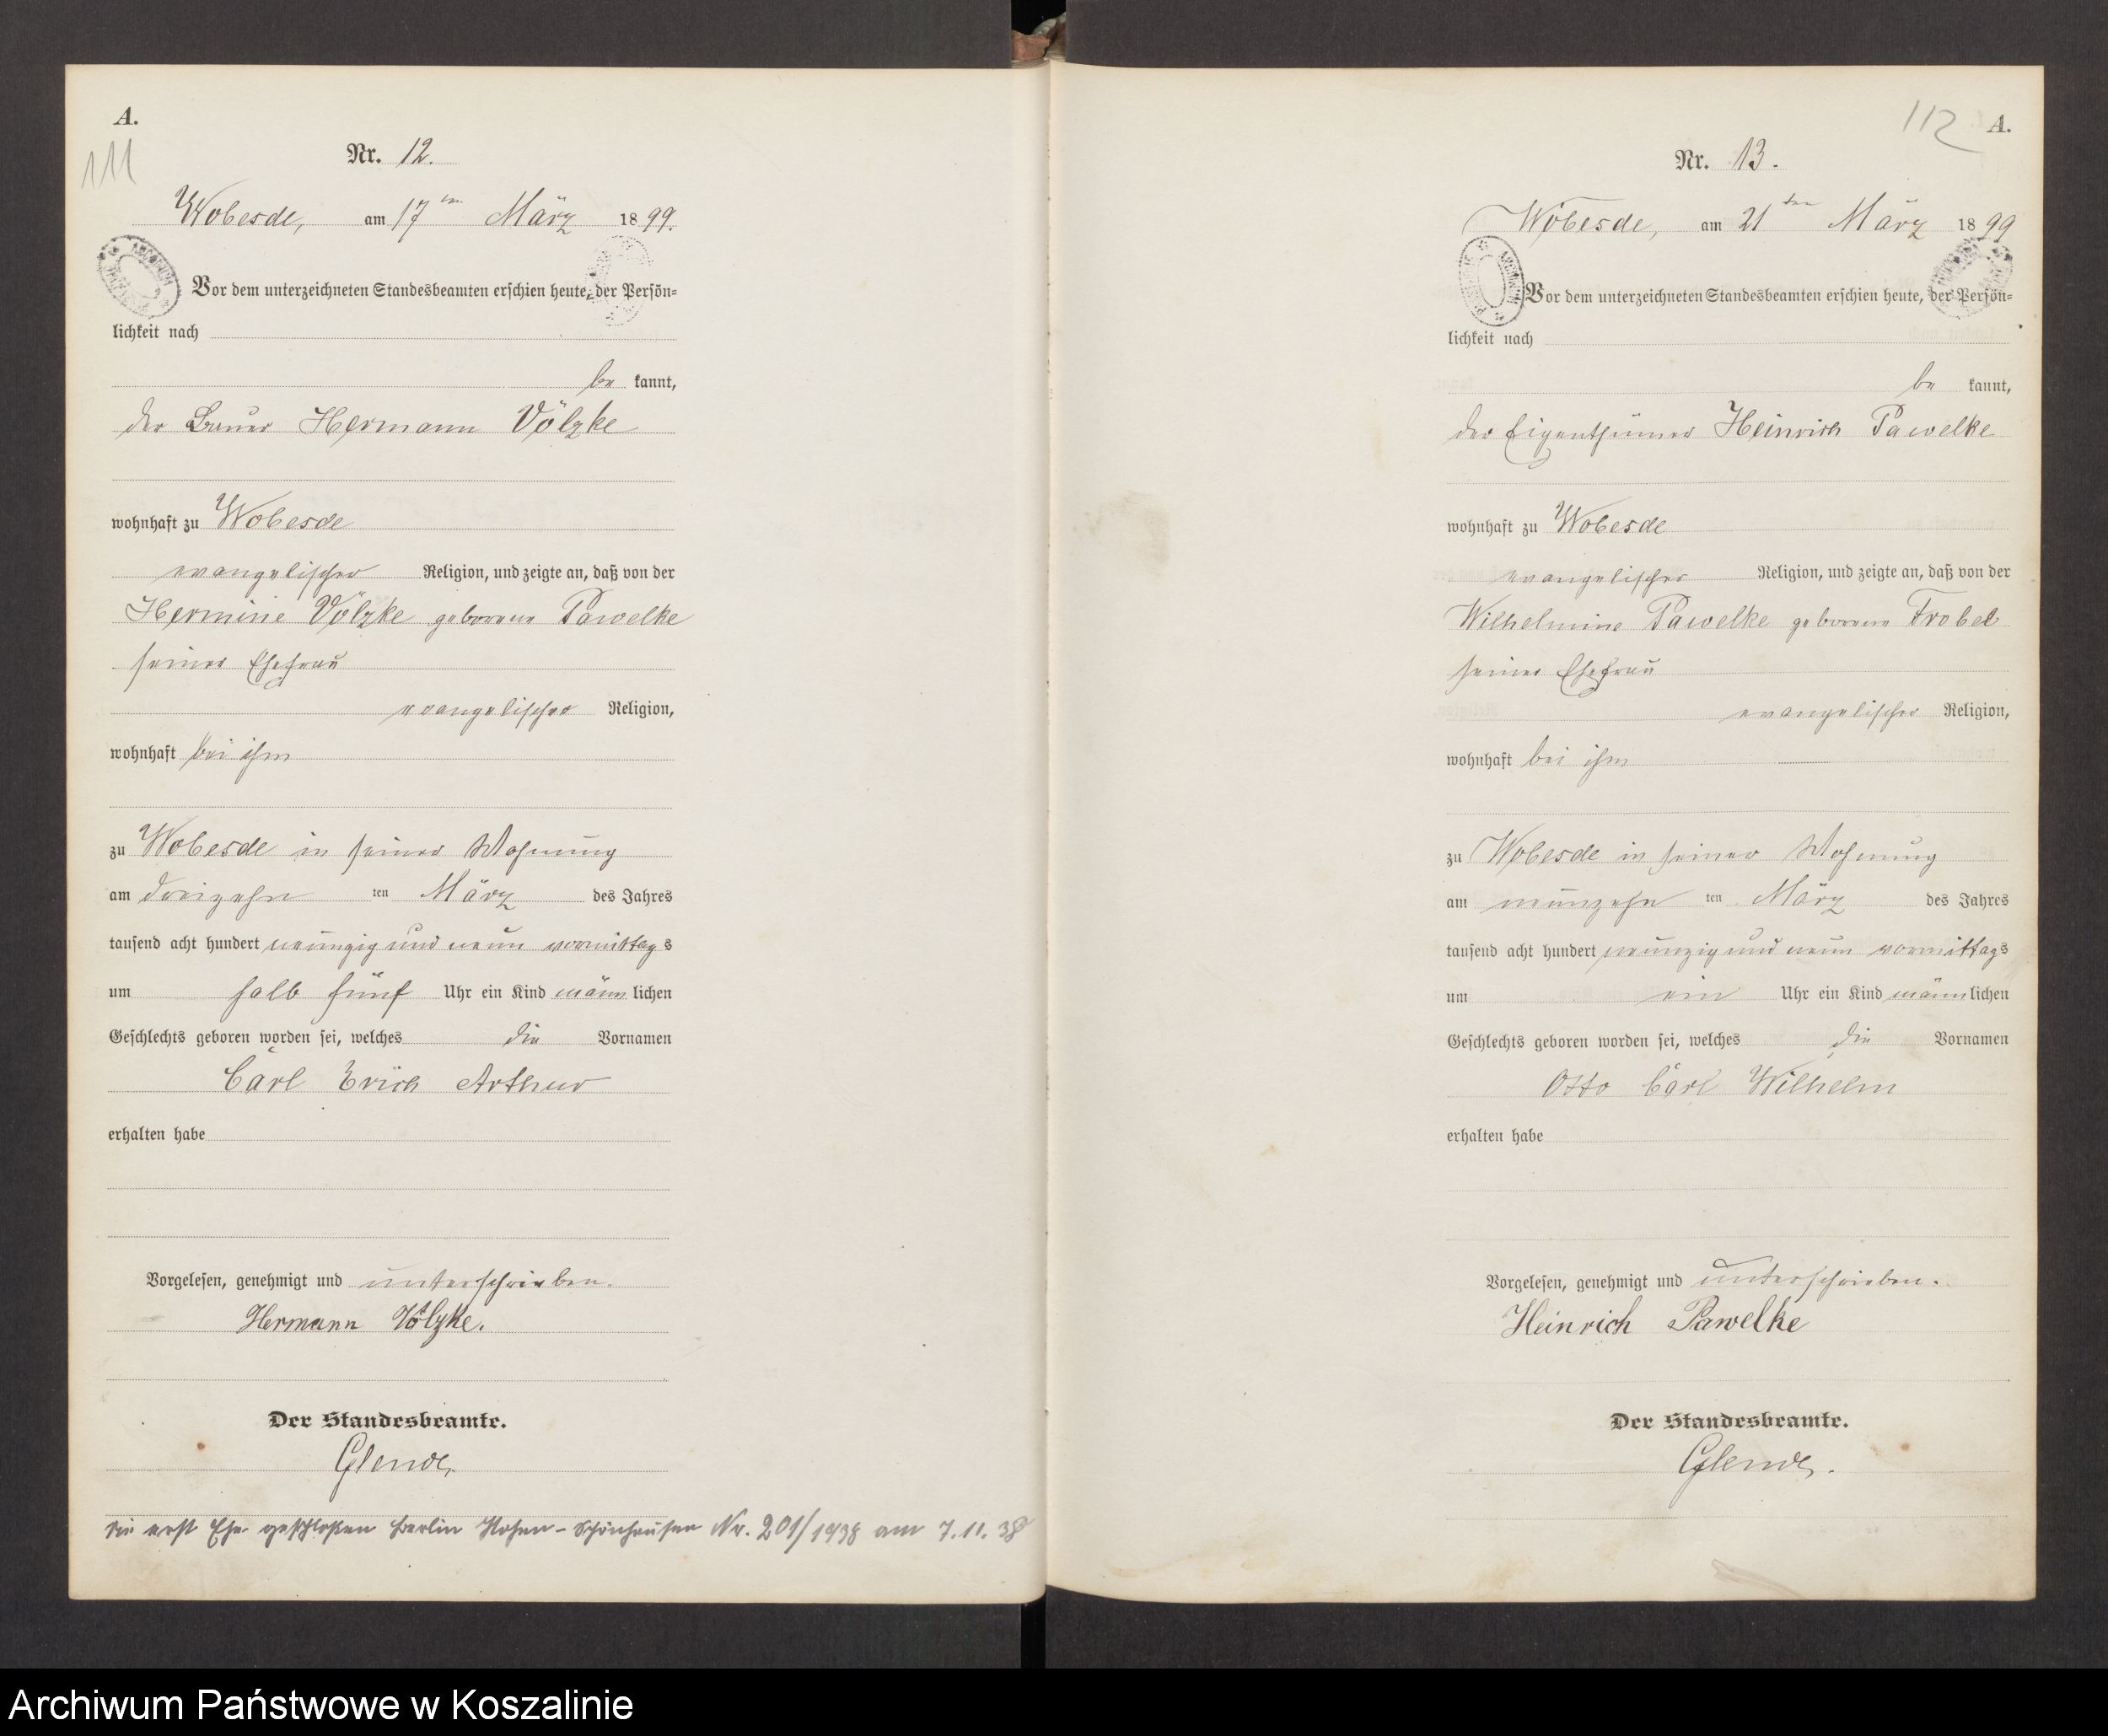 A.
111
Nr. 12.
Wobesde, am 17ten März 1899.
Vor dem unterzeichneten Standesbeamten erschien heute, der Persön=
lichkeit nach
be kannt,
der Bauer Hermann Völzke
wohnhaft zu Wobesde
evangelischer Religion, und zeigte an, daß von der
Hermine Völzke geborene Pawelke
seiner Ehefrau
evangelischer Religion,
wohnhaft bei ihm
zu Wobesde in seiner Wohnung
am dreizehn ten März des Jahres
tausend acht hundert neunzig und neun vormittags
um halb fünf Uhr ein Kind männlichen
Geschlechts geboren worden sei, welches die Vornamen
Carl Erich Arthur
erhalten habe
Vorgelesen, genehmigt und unterschrieben.
Hermann Völzke.
Der Standesbeamte.
Glende
erst Ehe geschloßen Berlin Hohen-Schönhausen Nr. 201/1938 am 7.11.38
112
A.
Nr. 13.
Wobesde, am 21ten März 1899
Vor dem unterzeichneten Standesbeamten erschien heute, der Persön=
lichkeit nach
be kannt,
der Eigenthümer Heinrich Pawelke
wohnhaft zu Wobesde
evangelischer Religion, und zeigte an, daß von der
Wilhelmine Pawelke geborene Frobel
seiner Ehefrau
evangelischer Religion,
wohnhaft bei ihm
zu Wobesde in seiner Wohnung
am neunzehn ten März des Jahres
tausend acht hundert neunzig und neun vormittags
um ein Uhr ein Kind männlichen
Geschlechts geboren worden sei, welches die Vornamen
Otto Carl Wilhelm
erhalten habe
Vorgelesen, genehmigt und unterschrieben.
Heinrich Pawelke
Der Standesbeamte.
Glende.
Archiwum Państwowe w Koszalinie